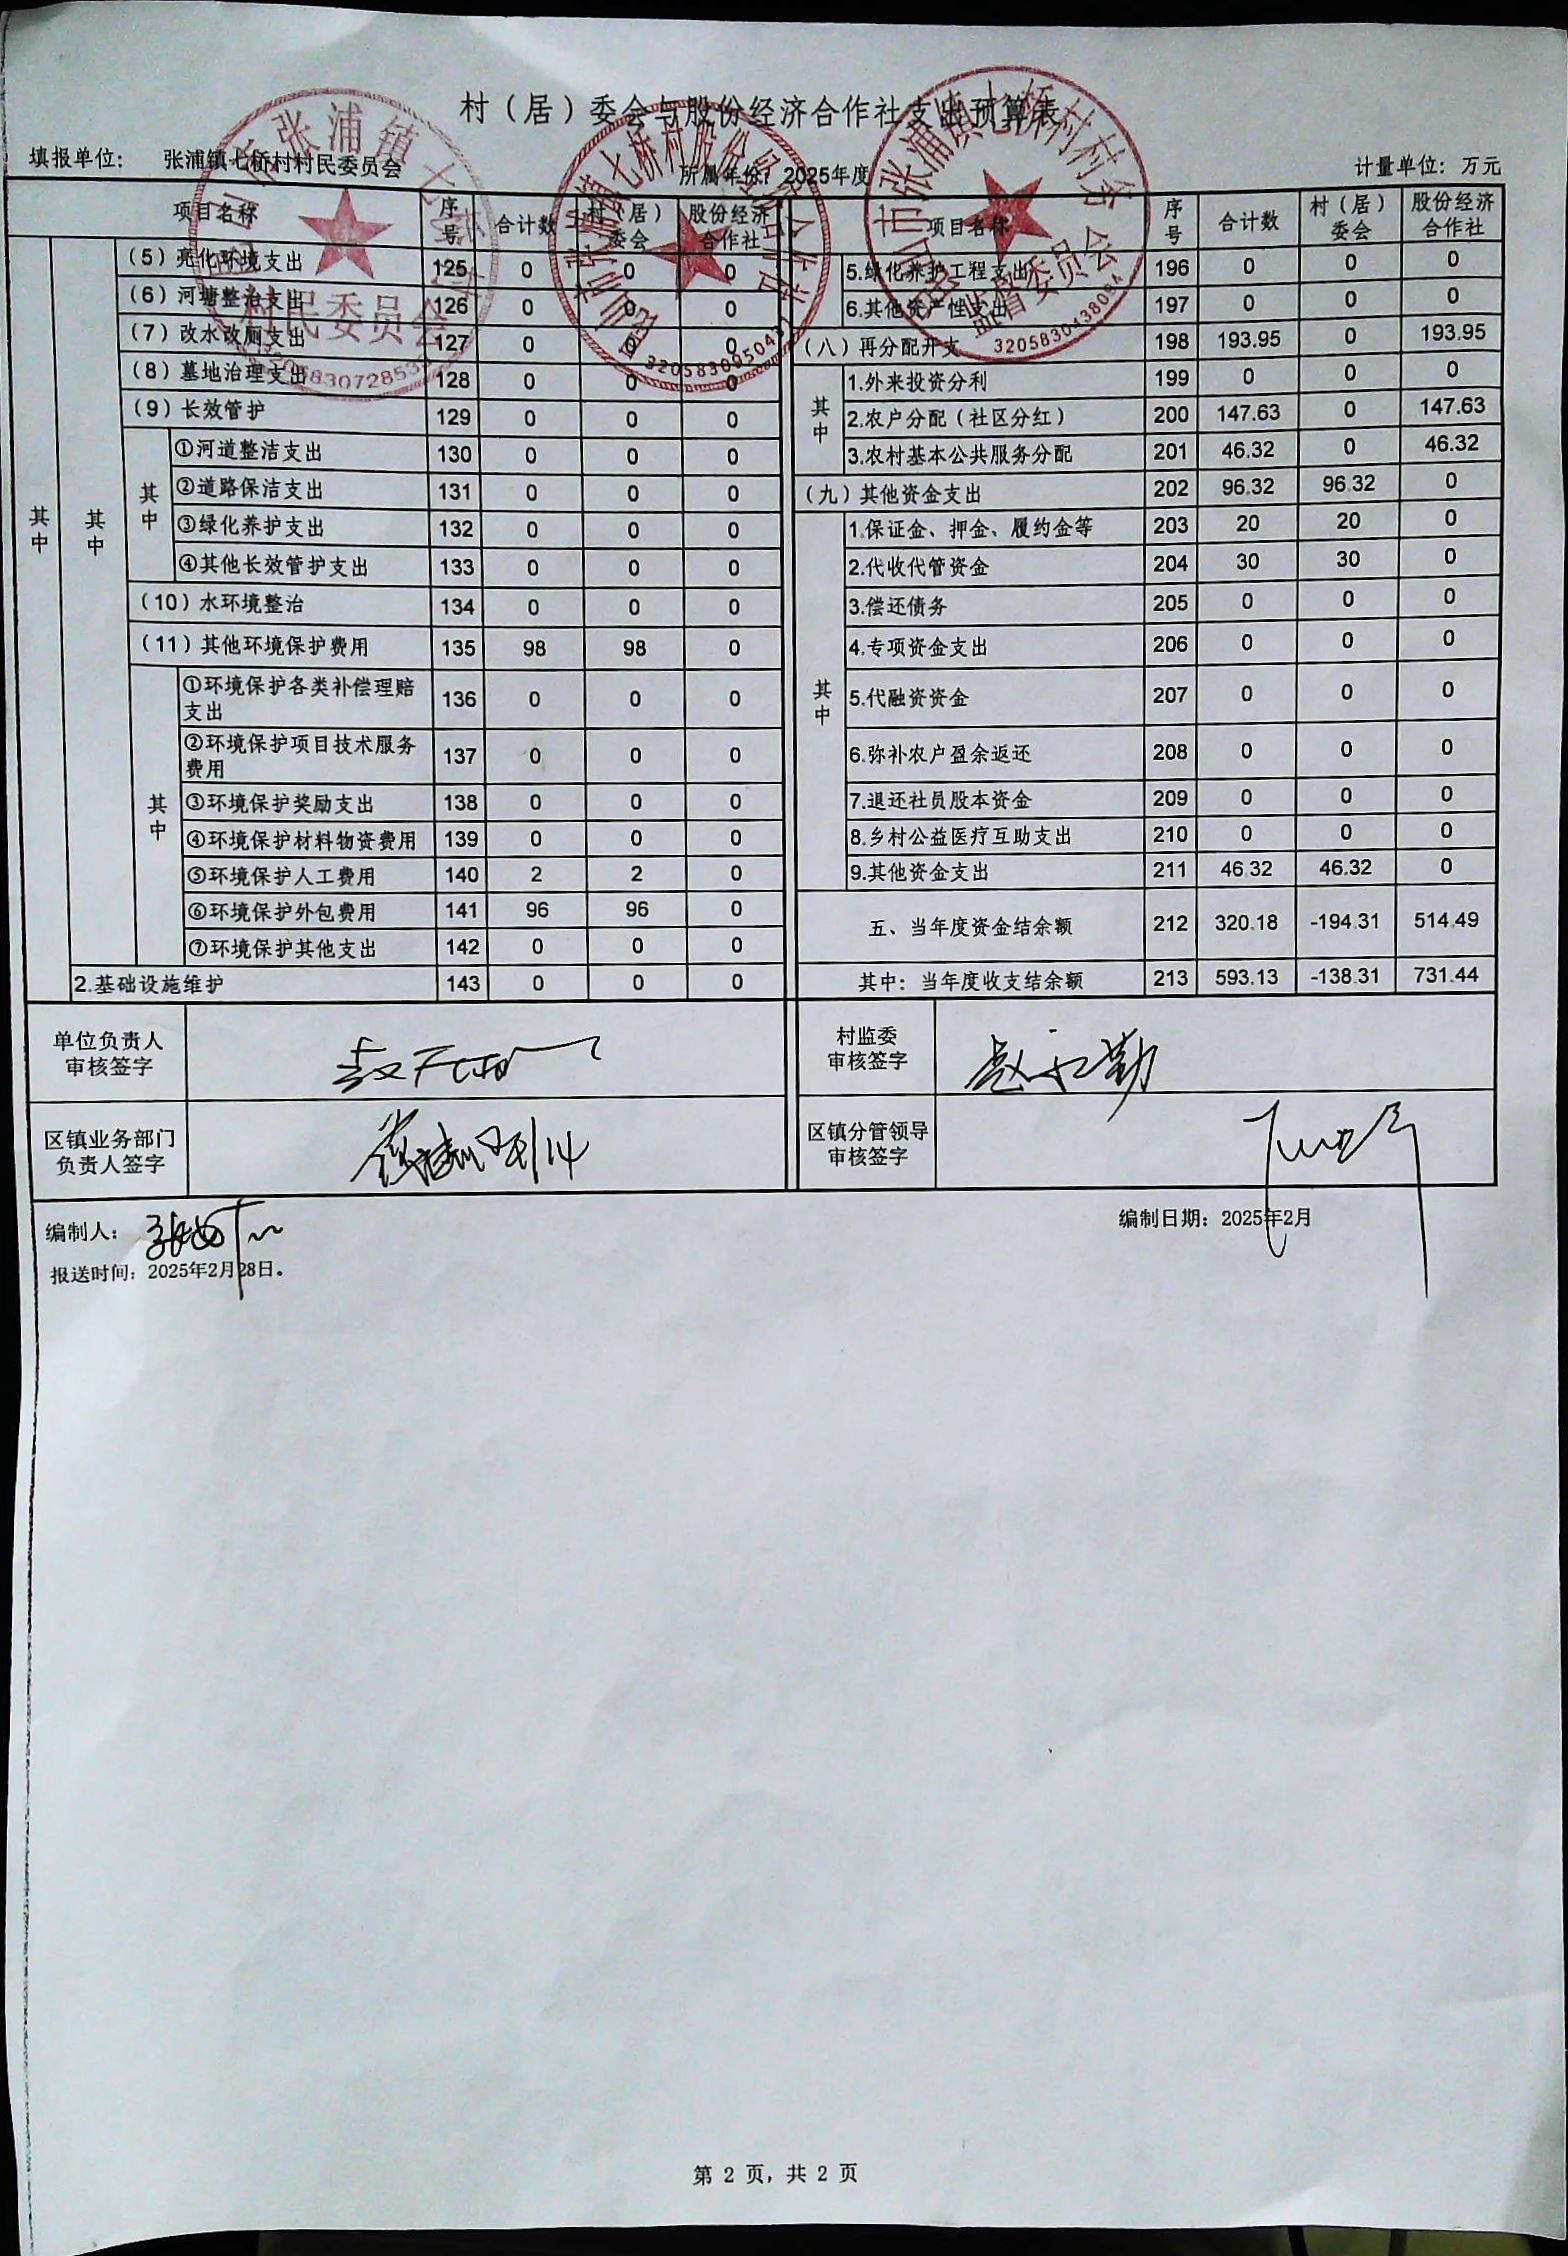 村（居）委会与股份经济合作社支出预算表
填报单位： 张浦镇七桥村村民委员会 所属年份：2025年度 计量单位：万元
项目名称 序号 合计数 村（居）委会 股份经济合作社 项目名称 序号 合计数 村（居）委会 股份经济合作社
（5）亮化环境支出 125 0 0 0 5.绿化养护工程支出 196 0 0 0
（6）河塘整治支出 126 0 0 0 6.其他资产性支出 197 0 0 0
（7）改水改厕支出 127 0 0 0 （八）再分配开支 198 193.95 0 193.95
（8）墓地治理支出 128 0 0 0 1.外来投资分利 199 0 0 0
（9）长效管护 129 0 0 0 其中 2.农户分配（社区分红） 200 147.63 0 147.63
①河道整洁支出 130 0 0 0 3.农村基本公共服务分配 201 46.32 0 46.32
其中 其中 其中 ②道路保洁支出 131 0 0 0 （九）其他资金支出 202 96.32 96.32 0
③绿化养护支出 132 0 0 0 1.保证金、押金、履约金等 203 20 20 0
④其他长效管护支出 133 0 0 0 2.代收代管资金 204 30 30 0
（10）水环境整治 134 0 0 0 3.偿还债务 205 0 0 0
（11）其他环境保护费用 135 98 98 0 4.专项资金支出 206 0 0 0
①环境保护各类补偿理赔支出 136 0 0 0 其中 5.代融资资金 207 0 0 0
②环境保护项目技术服务费用 137 0 0 0 6.弥补农户盈余返还 208 0 0 0
其中 ③环境保护奖励支出 138 0 0 0 7.退还社员股本资金 209 0 0 0
④环境保护材料物资费用 139 0 0 0 8.乡村公益医疗互助支出 210 0 0 0
⑤环境保护人工费用 140 2 2 0 9.其他资金支出 211 46.32 46.32 0
⑥环境保护外包费用 141 96 96 0 五、当年度资金结余额 212 320.18 -194.31 514.49
⑦环境保护其他支出 142 0 0 0
2.基础设施维护 143 0 0 0 其中：当年度收支结余额 213 593.13 -138.31 731.44
单位负责人审核签字 村监委审核签字 赵永勤
区镇业务部门负责人签字 区镇分管领导审核签字
编制人： 编制日期：2025年2月
报送时间：2025年2月28日。
第 2 页，共 2 页